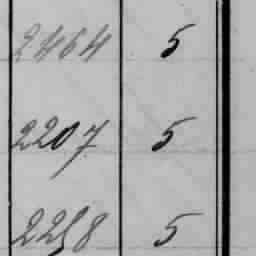 2464 5
2207 5
2258 5